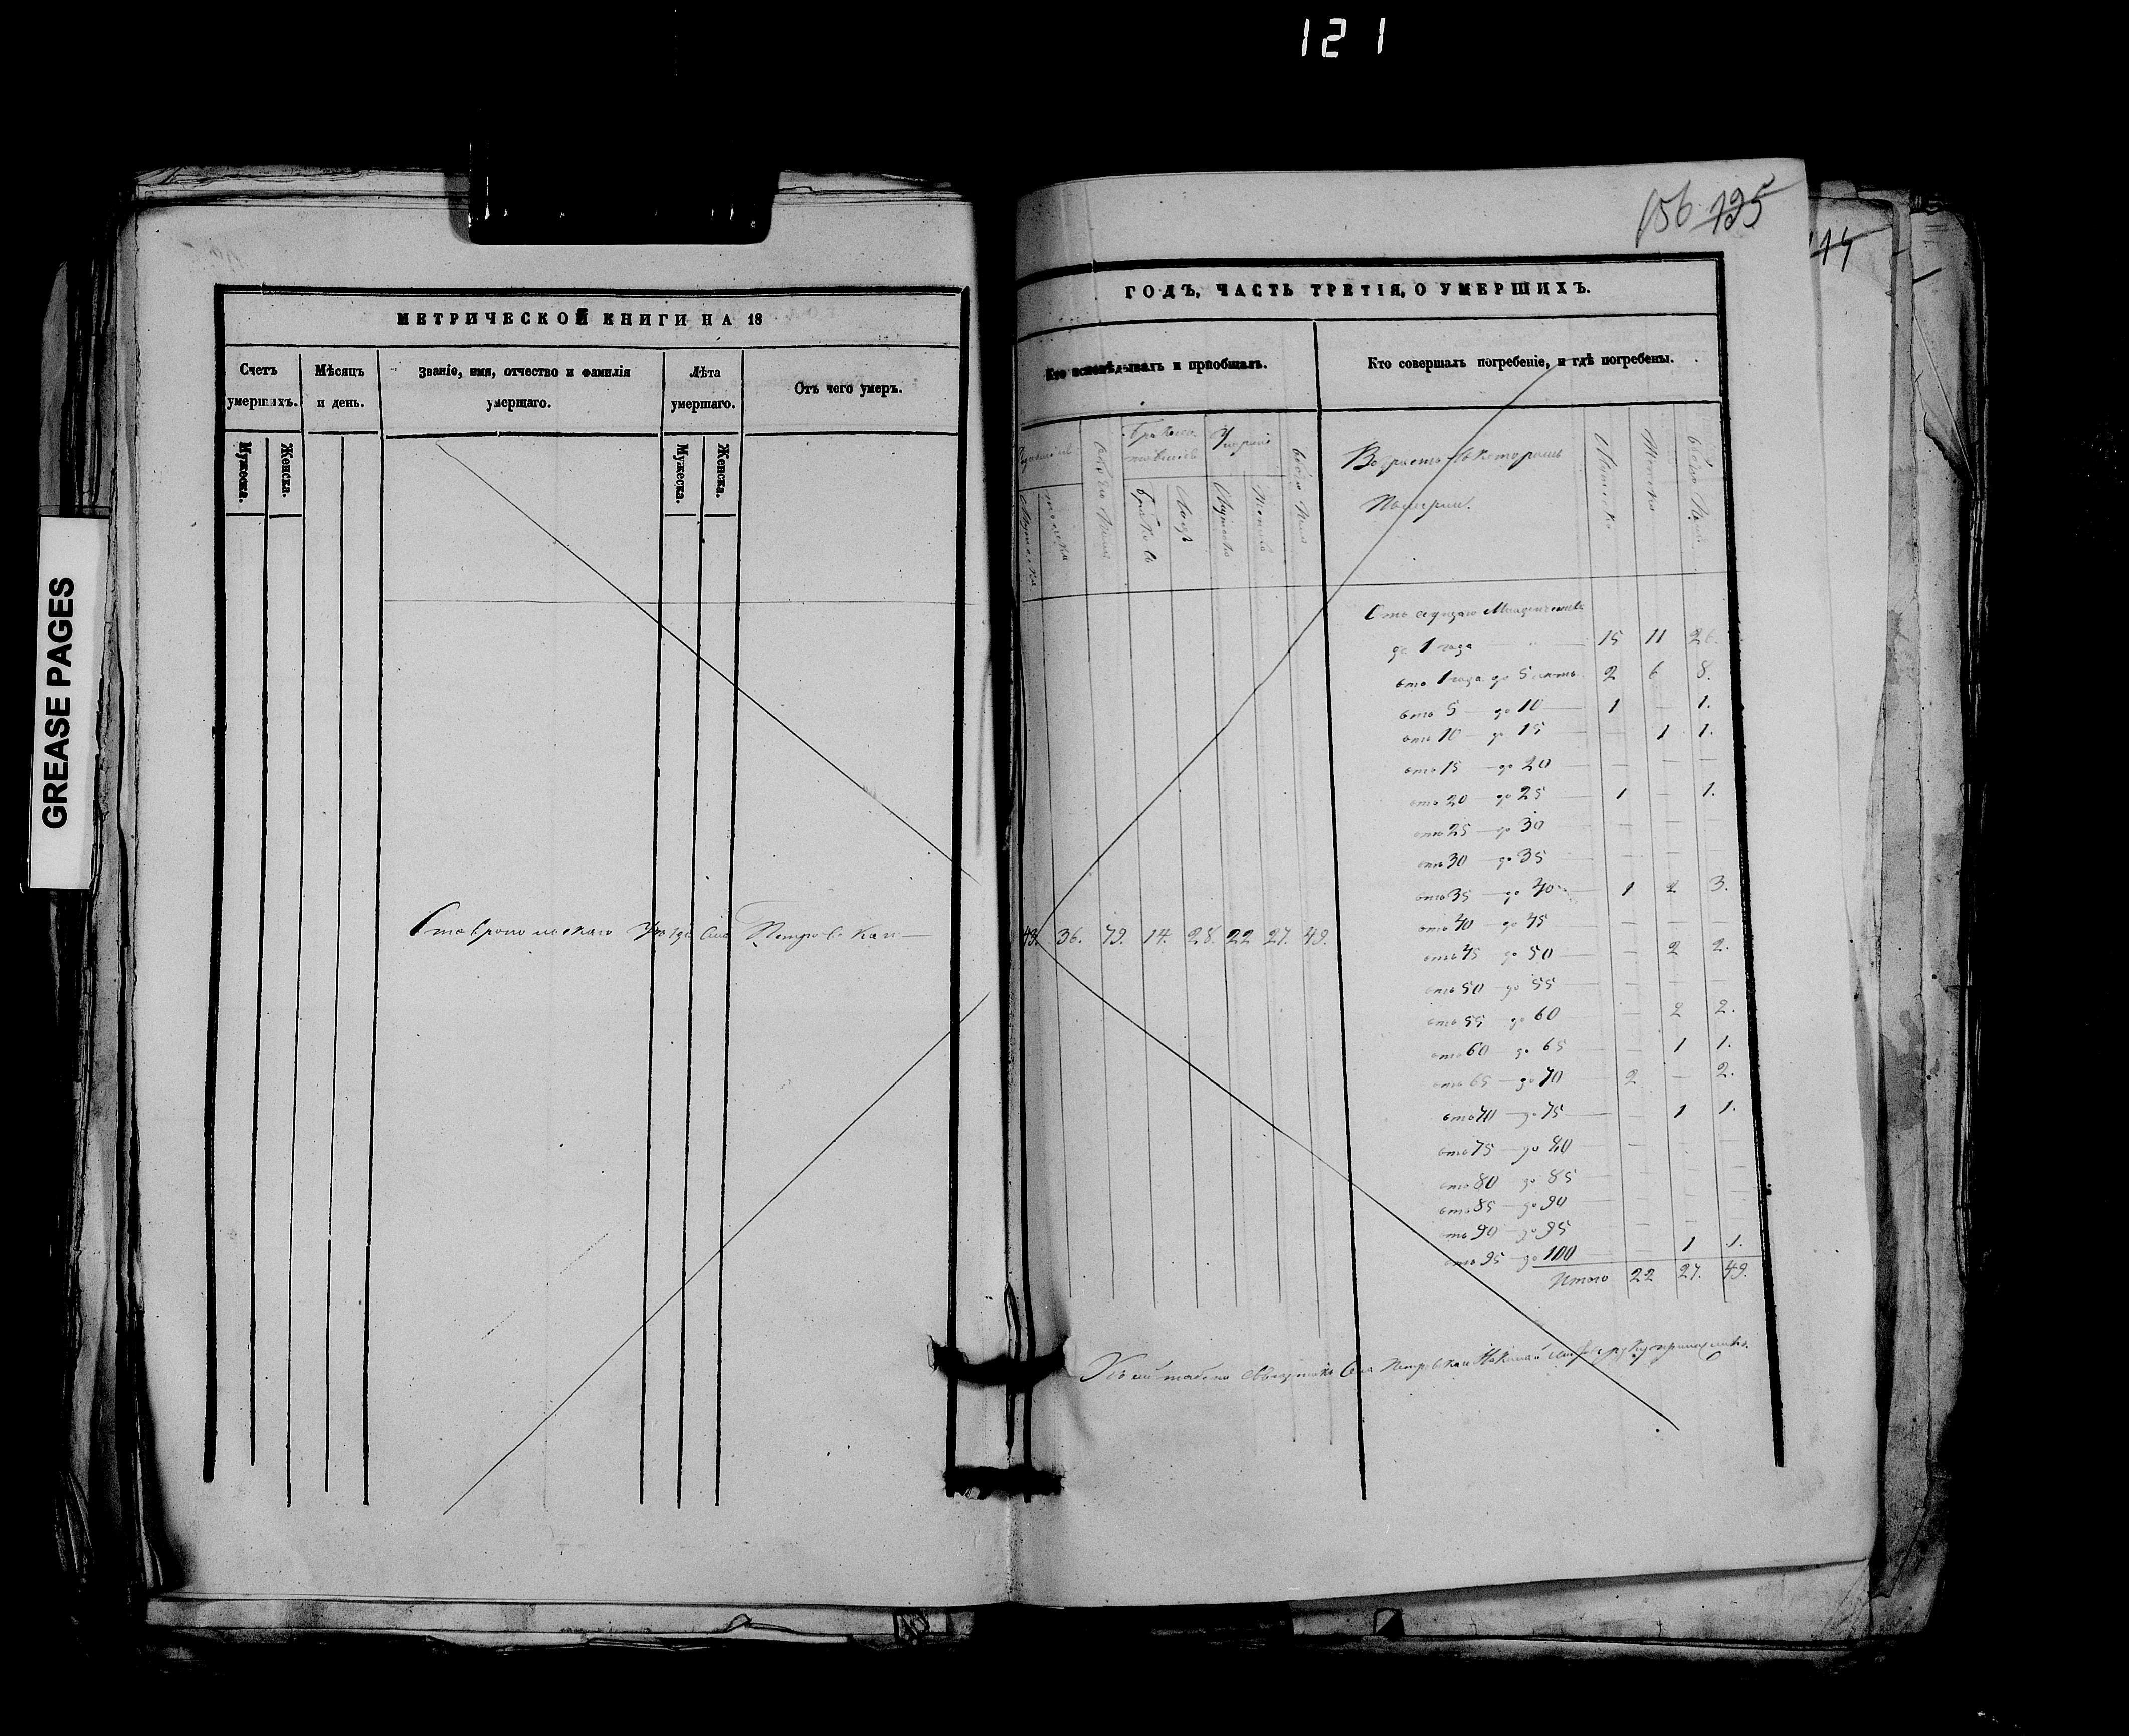 121
156 125
114
GREASE PAGES
МЕТРИЧЕСКОЙ КНИГИ НА 18
Счетъ умершихъ.
Мѣсяцъ и день.
Званіе, имя, отчество и фамилія умершаго.
Лѣта умершаго.
Отъ чего умеръ.
Мужеска.
Женска.
Мужеска.
Женска.
Ставропольскаго Уѣзда Села
ГОДЪ, ЧАСТЬ ТРЕТІЯ, О УМЕРШИХЪ.
Кто исповѣдывалъ и пріобщалъ.
Кто совершалъ погребеніе, и гдѣ погребены.
обоего пола
Браковъ
Лицъ
Мужеска
Женска
обоего пола
Возрастъ въ которомъ
померли.
Мужеска
Женска
обоего пола
43. 36. 79. 14. 28. 22 27. 49.
Отъ
до 1 года 15 11 26.
отъ 1 года до 5 лѣтъ 2 6 8.
отъ 5 — до 10 — 1 — 1.
отъ 10 — до 15 — — 1 1.
отъ 15 — до 20 — — — —
отъ 20 — до 25 — 1 — 1.
отъ 25 — до 30 — — — —
отъ 30 — до 35 — — — —
отъ 35 — до 40 — 1 2 3.
отъ 40 — до 45 — — — —
отъ 45 — до 50 — — 2 2.
отъ 50 — до 55 — — — —
отъ 55 — до 60 — — 2 2.
отъ 60 — до 65 — — 1 1.
отъ 65 — до 70 — 2 — 2.
отъ 70 — до 75 — — 1 1.
отъ 75 — до 80 — — — —
отъ 80 — до 85 — — — —
отъ 85 — до 90 — — — —
отъ 90 — до 95 — — — —
отъ 95 — до 100 — — 1 1.
Итого 22 27. 49.